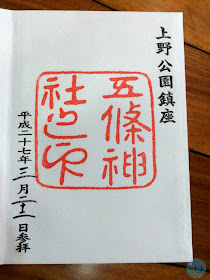 上野公園鎮座
五條神
社之印
平成二十七年三月二十二日参拝